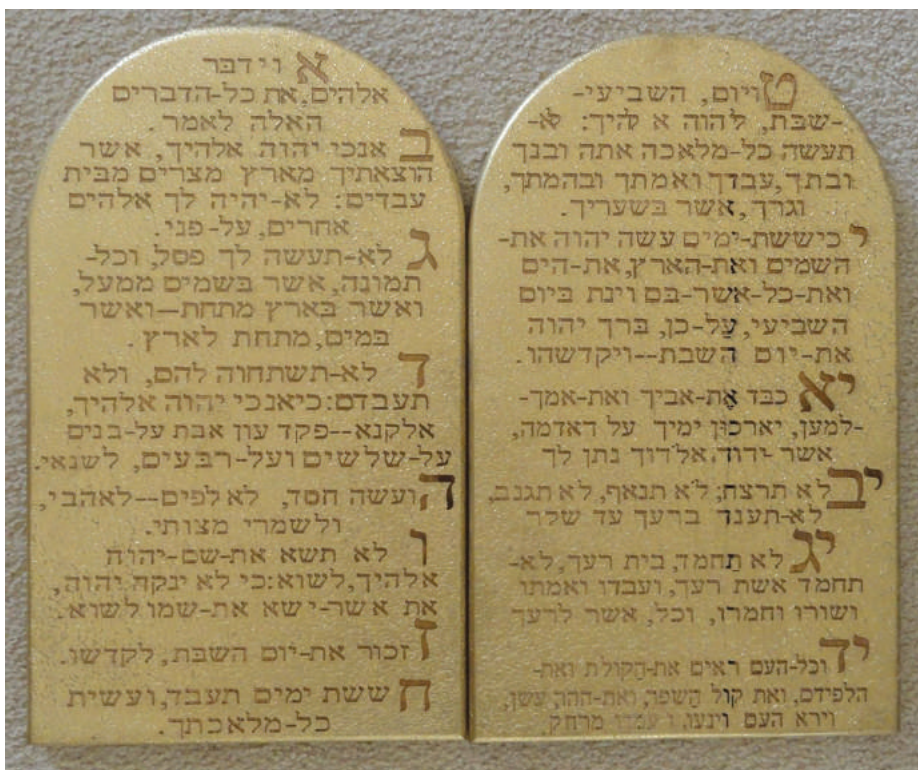 א וידבר
אלהים, את כל-הדברים
האלה לאמר.
ב אנכי יהוה אלהיך, אשר
הוצאתיך מארץ מצרים מבית
עבדים: לא-יהיה לך אלהים
אחרים, על-פני.
ג לא-תעשה לך פסל, וכל-
תמונה, אשר בשמים ממעל,
ואשר בארץ מתחת—ואשר
במים, מתחת לארץ.
ד לא-תשתחוה להם, ולא
תעבדם: כיאנכי יהוה אלהיך,
אלקנא--פקד עון אבת על-בנים
על-שלשים ועל-רבעים, לשנאי.
ה ועשה חסד, לאלפים--לאהבי,
ולשמרי מצותי.
ו לא תשא את-שם-יהוה
אלהיך, לשוא: כי לא ינקה יהוה,
את אשר-ישא את-שמו לשוא.
ז זכור את-יום השבת, לקדשו.
ח ששת ימים תעבד, ועשית
כל-מלאכתך.
ט ויום, השביעי-
-שבת, ליהוה א להיך: לא-
תעשה כל-מלאכה אתה ובנך
ובתך, עבדך ואמתך ובהמתך,
וגרך, אשר בשעריך.
י כיששת-ימים עשה יהוה את-
השמים ואת-הארץ, את-הים
ואת-כל-אשר-בם וינת ביום
השביעי, על-כן, ברך יהוה
את-יום השבת--ויקדשהו.
יא כבד את-אביך ואת-אמך-
-למען, יארכון ימיך על האדמה,
אשר-יהוה נתן לך
יב לא תרצח; לא תנאף, לא תגנב,
לא-תענד ברעך עד שקר
יג לא תחמד, בית רעך, לא-
תחמד אשת רעך, ועבדו ואמתו
ושורו וחמרו, וכל, אשר לרעך
יד וכל-העם ראים את-הקולת ואת-
הלפידם, ואת קול השפר, ואת-ההר, עשן,
וירא העם וינעו, ועמדו מרחק